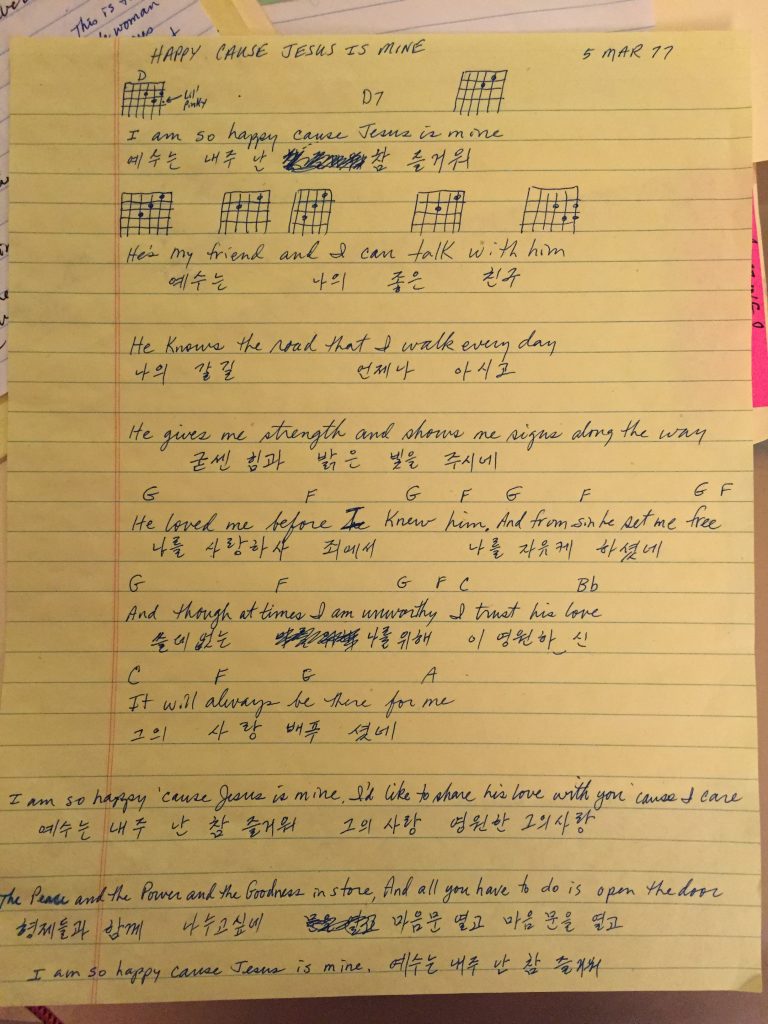 HAPPY CAUSE JESUS IS MINE 5 MAR 77
D Lil' Pinky D7
I am so happy cause Jesus is mine
예수는 내주 난 참 즐거워
He's my friend and I can talk with him
예수는 나의 좋은 친구
He knows the road that I walk every day
나의 갈길 언제나 아시고
He gives me strength and shows me signs along the way
굳센 힘과 밝은 빛을 주시네
G F G F G F G F
He loved me before I knew him. And from sin he set me free
나를 사랑하사 죄에서 나를 자유케 하셨네
G F G F C Bb
And though at times I am unworthy I trust his love
쓸데없는 나를위해 이 영원하신
C F G A
It will always be there for me
그의 사랑 배푸셨네
I am so happy 'cause Jesus is mine, I'd like to share his love with you 'cause I care
예수는 내주 난 참 즐거워 그의 사랑 영원한 그의사랑
The Peace and the Power and the Goodness in store, And all you have to do is open the door
형제들과 함께 나누고싶네 마음문 열고 마음 문을 열고
I am so happy cause Jesus is mine. 예수는 내주 난 참 즐거워